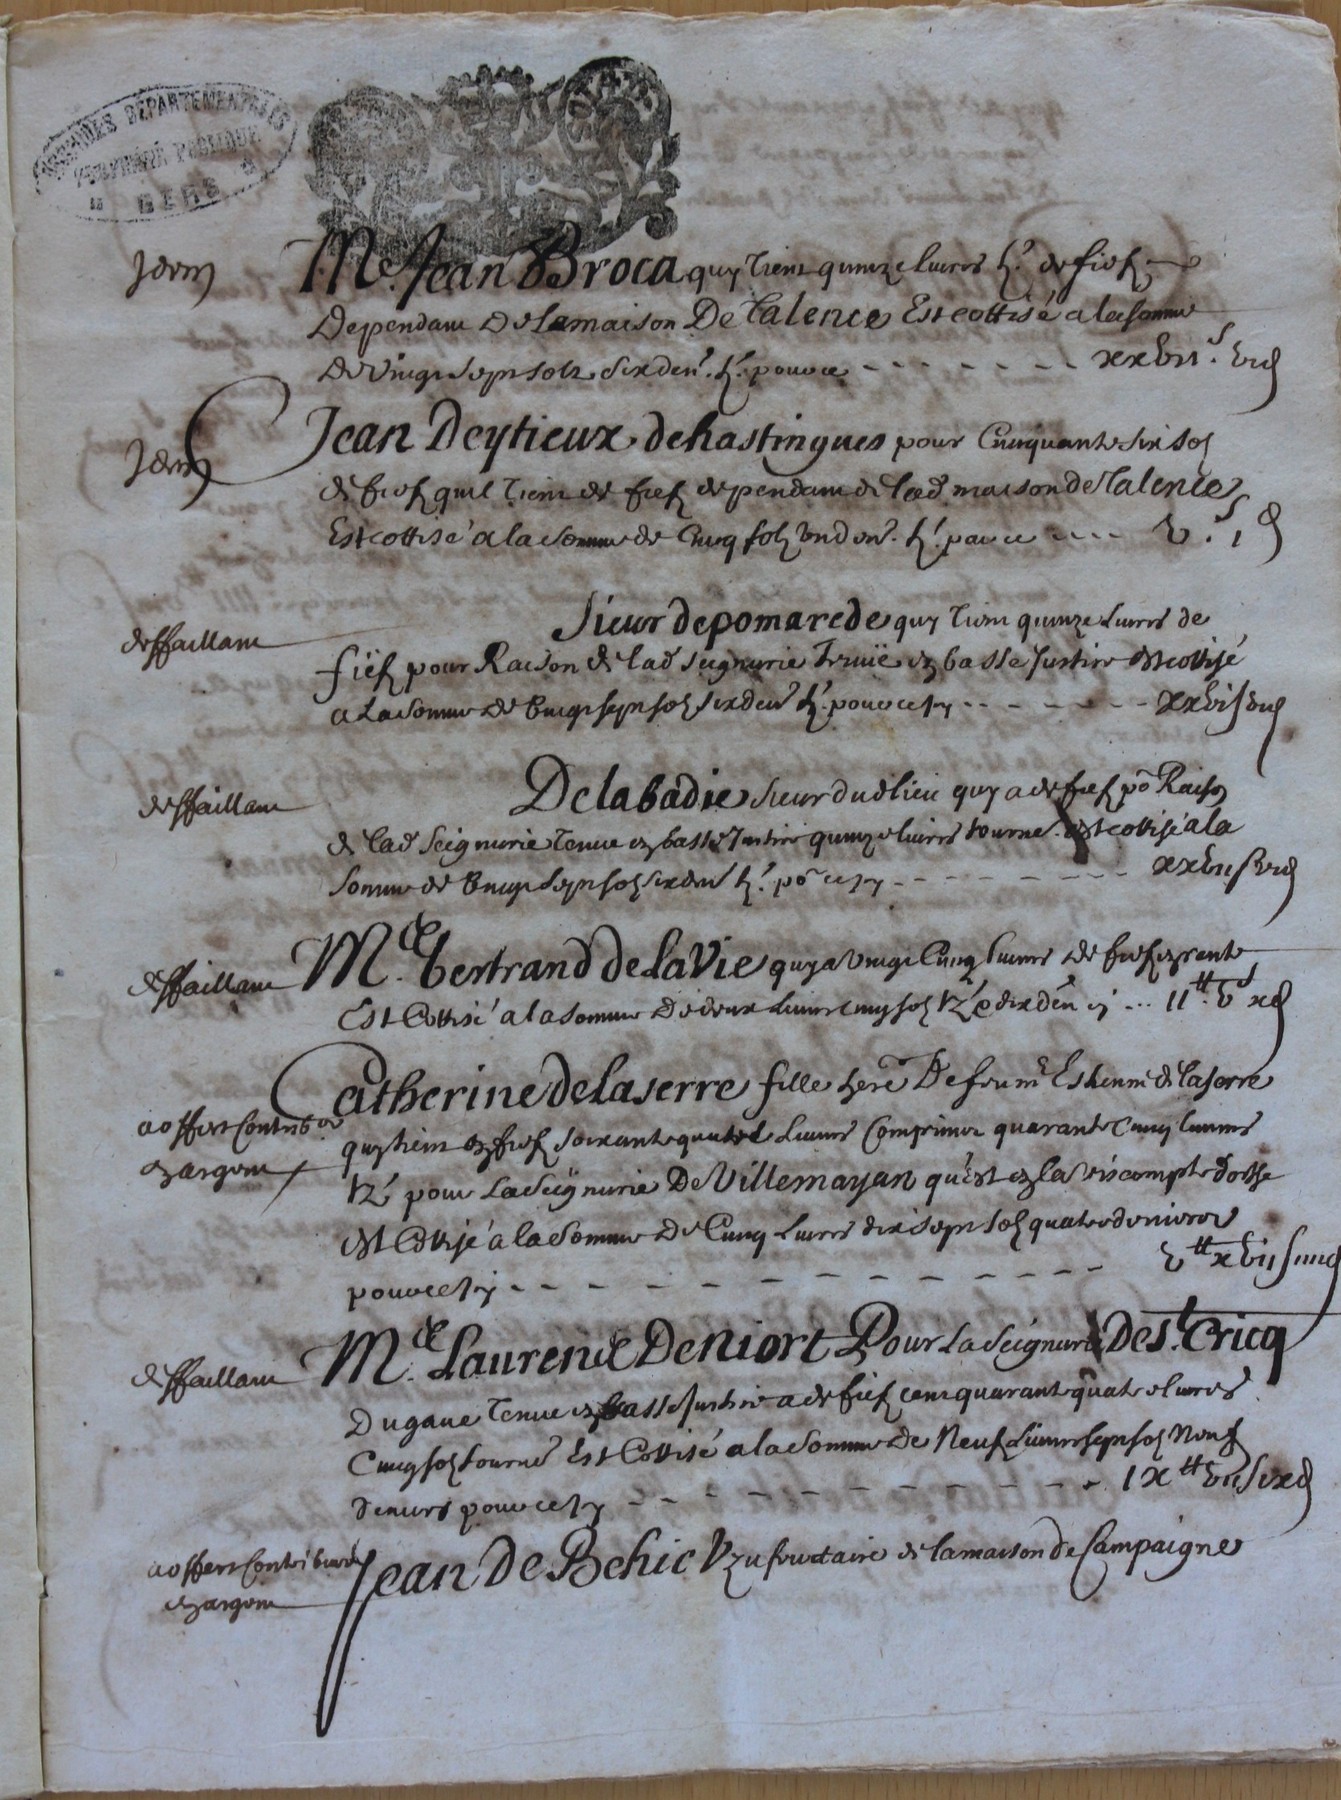 ARCHIVES DÉPARTEMENTALES
PROPRIÉTÉ PUBLIQUE
GERS
Idem
Me. Jean Broca quy tient quinze livres ts. de fief
Dependant De la maison De Talence Est cottisé a la somme
De vingt sept solz six den. ts. pour ce xxvii s. vi d
Idem
Jean Deytieux de hastingues pour Cincquante six sols
de fief quil tient de fief dependant de lad maison de Talence
Est cottisé a la somme de Cincq solz un den. ts. pour ce v s. i d
deffaillant
Sieur de pomarede quy tient quinze Livres de
fief pour Raison de lad seignurie tenuë en basse Justice est cottisé
a la somme de vingt sept solz six den ts. pour cecy xxvii s vi d
deffaillant
De labadie sieur dud lieu quy a de fief po Raison
de lad Seignurie tenue en basse Justice quinze livres tourne. est cottisé a la
somme de vingt sept solz six den ts. po cecy xxvii s vi d
deffaillant
Me. bertrand de La Vie quy a vingt Cincq livres de fief en rente
Est Cottisé a la somme De deux Livres cincq solz dix den cy ii tt. v s x d
Catherine de laserre fille here De feu mr Estienne de laserre
a offert Contribuer
en argent
quy tient en fief soixante quatre Livres Comprins quarante Cincq livres
pour La Seignurie De Villemayan qu'est en la viscompté dorthe
est Cottisé a la somme De Cincq Livres dix sept solz quatre deniers
pour cecy v tt xvii s iiii d
deffaillant
Me. Laurence De niort Pour La Seignurie De st. Cricq
Dugave tenue en basse Justice a de fief cent quarante quatre livres
Cincq solz tourne Est Cottisé a la somme de Neuf Livres sept solz Neuf
deniers pour cecy ix tt vii s ix d
a offert Contribuer
en argent
Jean De Behic Vzufructaire de la maison de Campaigne